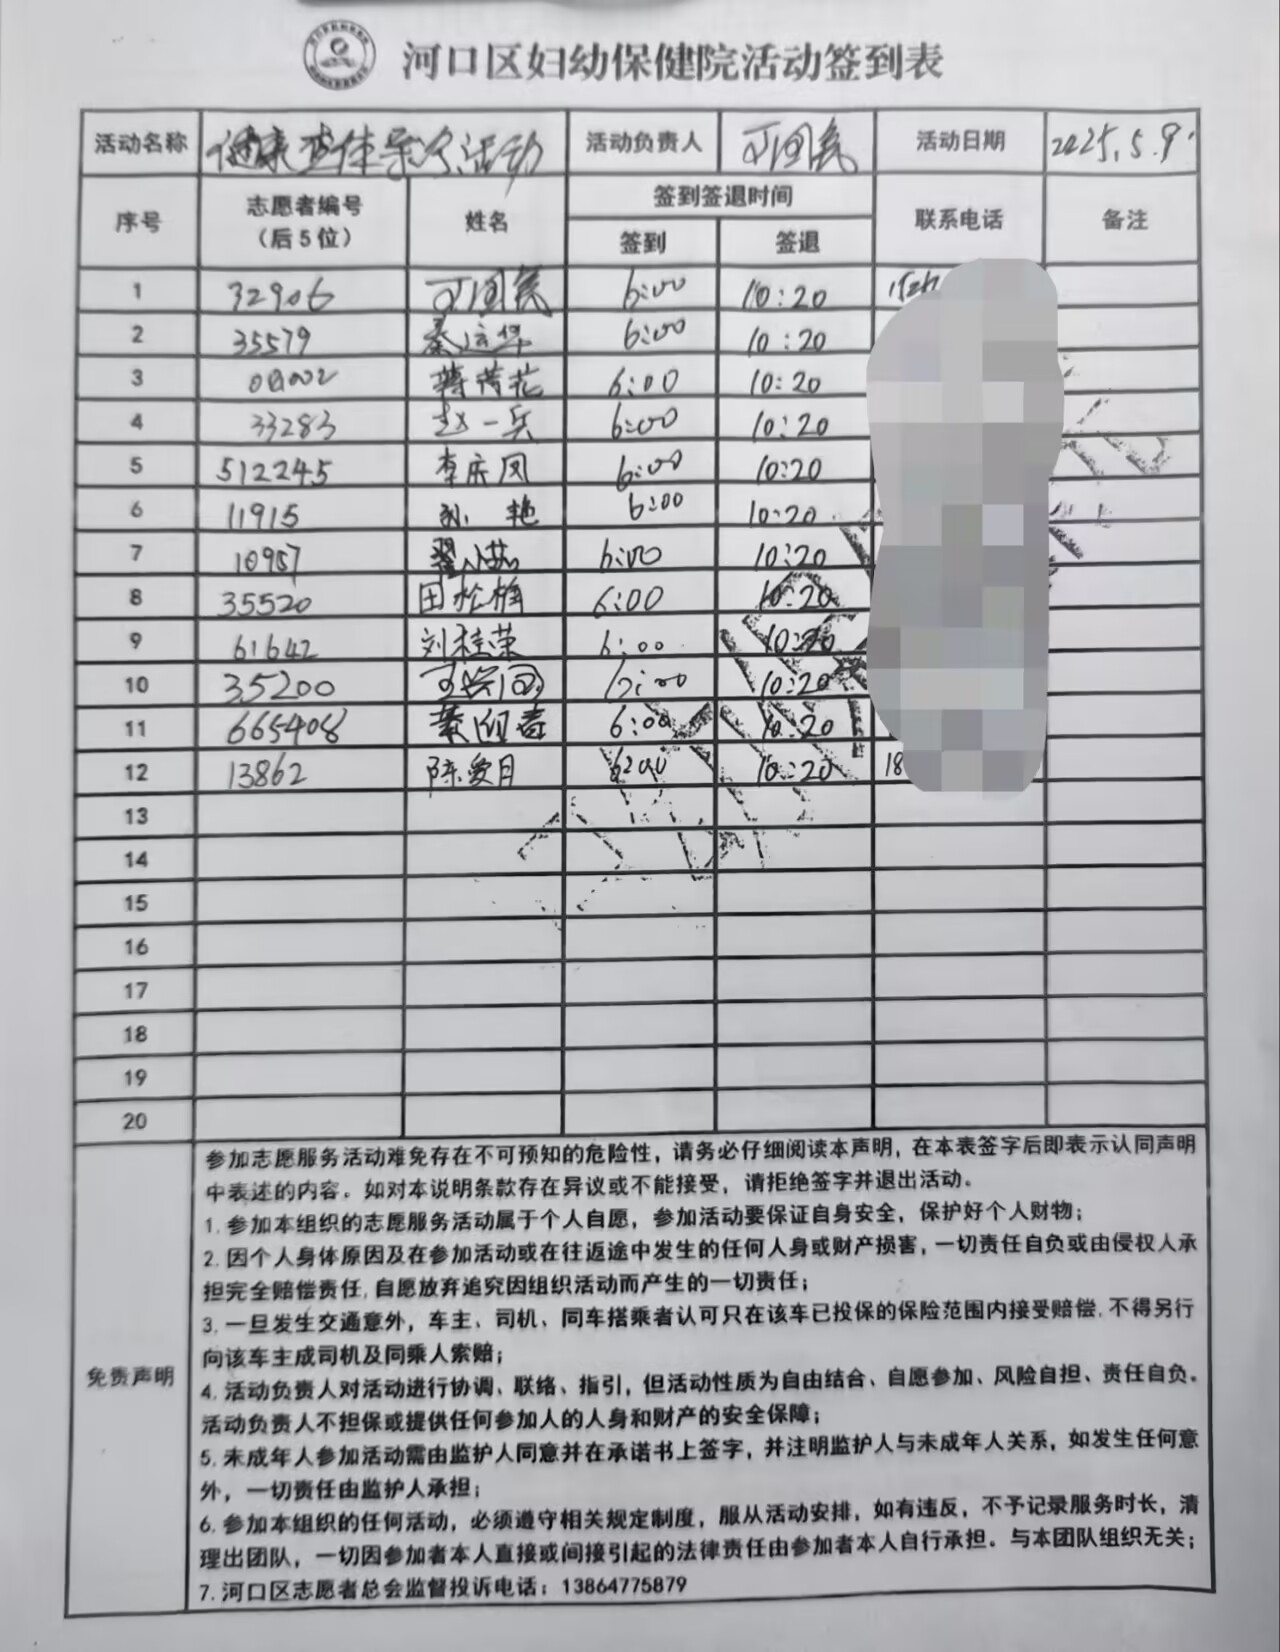 河口区妇幼保健院活动签到表
活动名称 健康查体导诊活动 活动负责人 活动日期 2025.5.9.
序号 志愿者编号（后5位） 姓名 签到签退时间 联系电话 备注
签到 签退
1 32906 6:00 10:20
2 35579 秦运华 6:00 10:20
3 00002 薄荷花 6:00 10:20
4 33283 赵一兵 6:00 10:20
5 512245 李庆凤 6:00 10:20
6 11915 孙艳 6:00 10:20
7 10957 6:00 10:20
8 35520 田松梅 6:00 10:20
9 61642 刘桂荣 6:00 10:20
10 35200 6:00 10:20
11 665408 6:00 10:20
12 13862 陈爱月 6:00 10:20 18
13
14
15
16
17
18
19
20
免责声明
参加志愿服务活动难免存在不可预知的危险性，请务必仔细阅读本声明，在本表签字后即表示认同声明
中表述的内容。如对本说明条款存在异议或不能接受，请拒绝签字并退出活动。
1. 参加本组织的志愿服务活动属于个人自愿，参加活动要保证自身安全，保护好个人财物；
2. 因个人身体原因及在参加活动或在往返途中发生的任何人身或财产损害，一切责任自负或由侵权人承
担完全赔偿责任,自愿放弃追究因组织活动而产生的一切责任；
3. 一旦发生交通意外，车主、司机、同车搭乘者认可只在该车已投保的保险范围内接受赔偿，不得另行
向该车主成司机及同乘人索赔；
4. 活动负责人对活动进行协调、联络、指引，但活动性质为自由结合、自愿参加、风险自担、责任自负。
活动负责人不担保或提供任何参加人的人身和财产的安全保障；
5. 未成年人参加活动需由监护人同意并在承诺书上签字，并注明监护人与未成年人关系，如发生任何意
外，一切责任由监护人承担；
6. 参加本组织的任何活动，必须遵守相关规定制度，服从活动安排，如有违反，不予记录服务时长，清
理出团队，一切因参加者本人直接或间接引起的法律责任由参加者本人自行承担。与本团队组织无关；
7. 河口区志愿者总会监督投诉电话：13864775879